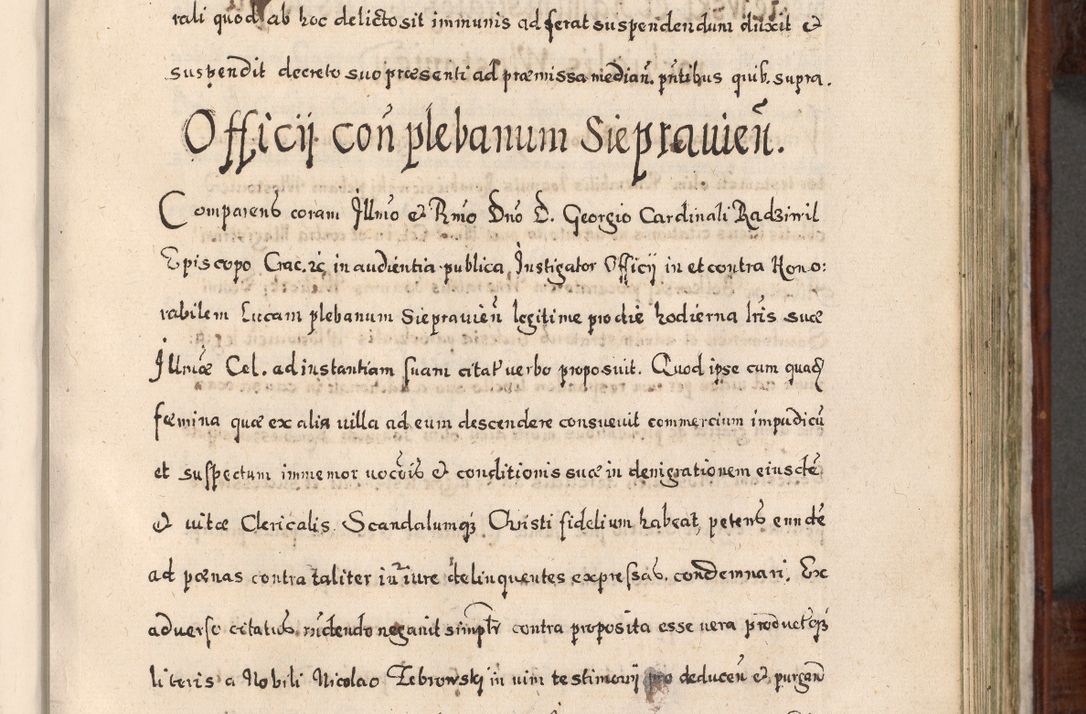 rali quod ab hoc delicto sit immunis ad ferat suspendendum duxit &
suspendit decreto suo præsenti ad præmissa median. pñtibus quib. supra.
Officij coñ plebanum Siepravieñ.
Comparens coram Illmo & Rmo Dno D. Georgio Cardinali Radziwil
Episcopo Crac. &c in audientia publica Instigator Officij in et contra Hono:
rabilem Lucam plebanum Siepravieñ legitime pro die hodierna lris suæ
Illmæ Cel. ad instantiam suam citat verbo proposuit. Quod ipse cum quadã
fœmina quæ ex alia villa ad eum descendere consuevit commercium impudicũ
et suspectum immemor vocõis & conditionis suæ in denigrationem eiusdẽ
& vitæ Clericalis Scandalumq; Christi fidelium habeat, petens eundẽ
ad pœnas contra taliter in iure delinquentes expressas condemnari. Ex
adverso citatus rñdendo negavit simplr contra proposita esse vera productisq;
literis a Nobili Nicolao Zebrowskj in vim testimonij pro deduceñ & purgan